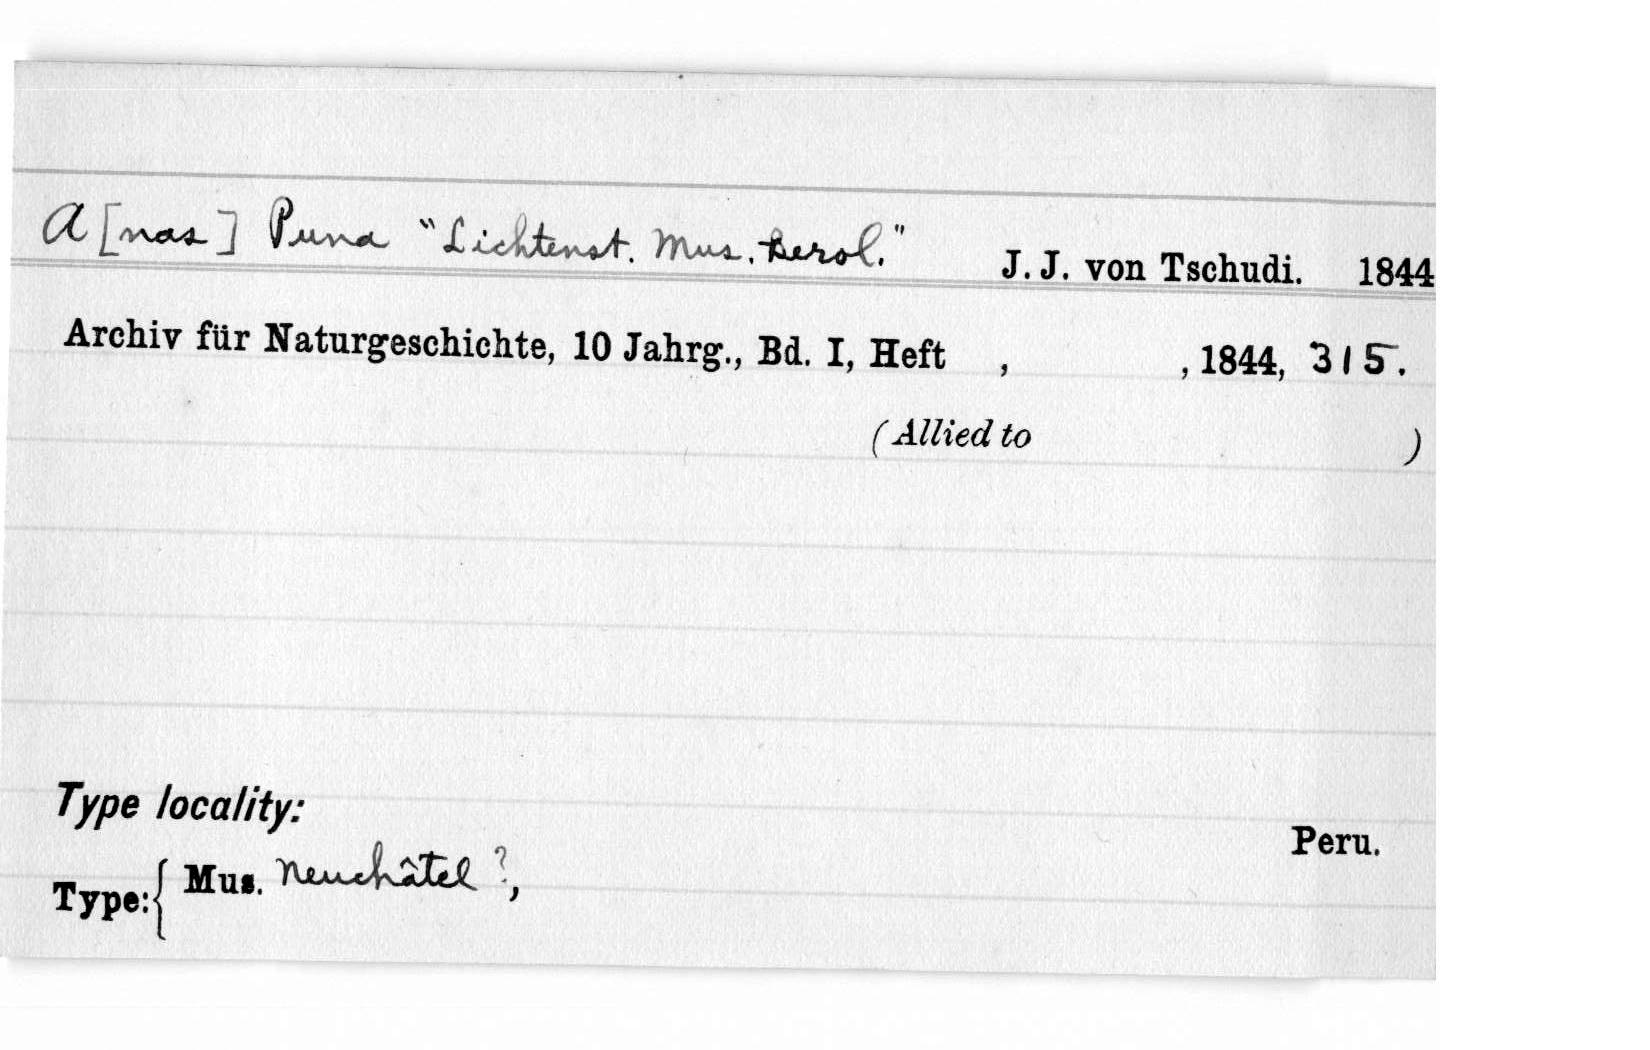 A[nas] Puna "Lichtenst. Mus. Berol." J. J. von Tschudi. 1844
Archiv für Naturgeschichte, 10 Jahrg., Bd. I, Heft , , 1844, 315.
(Allied to )
Type locality:
Peru.
Type:{ Mus. Neuchâtel ?,